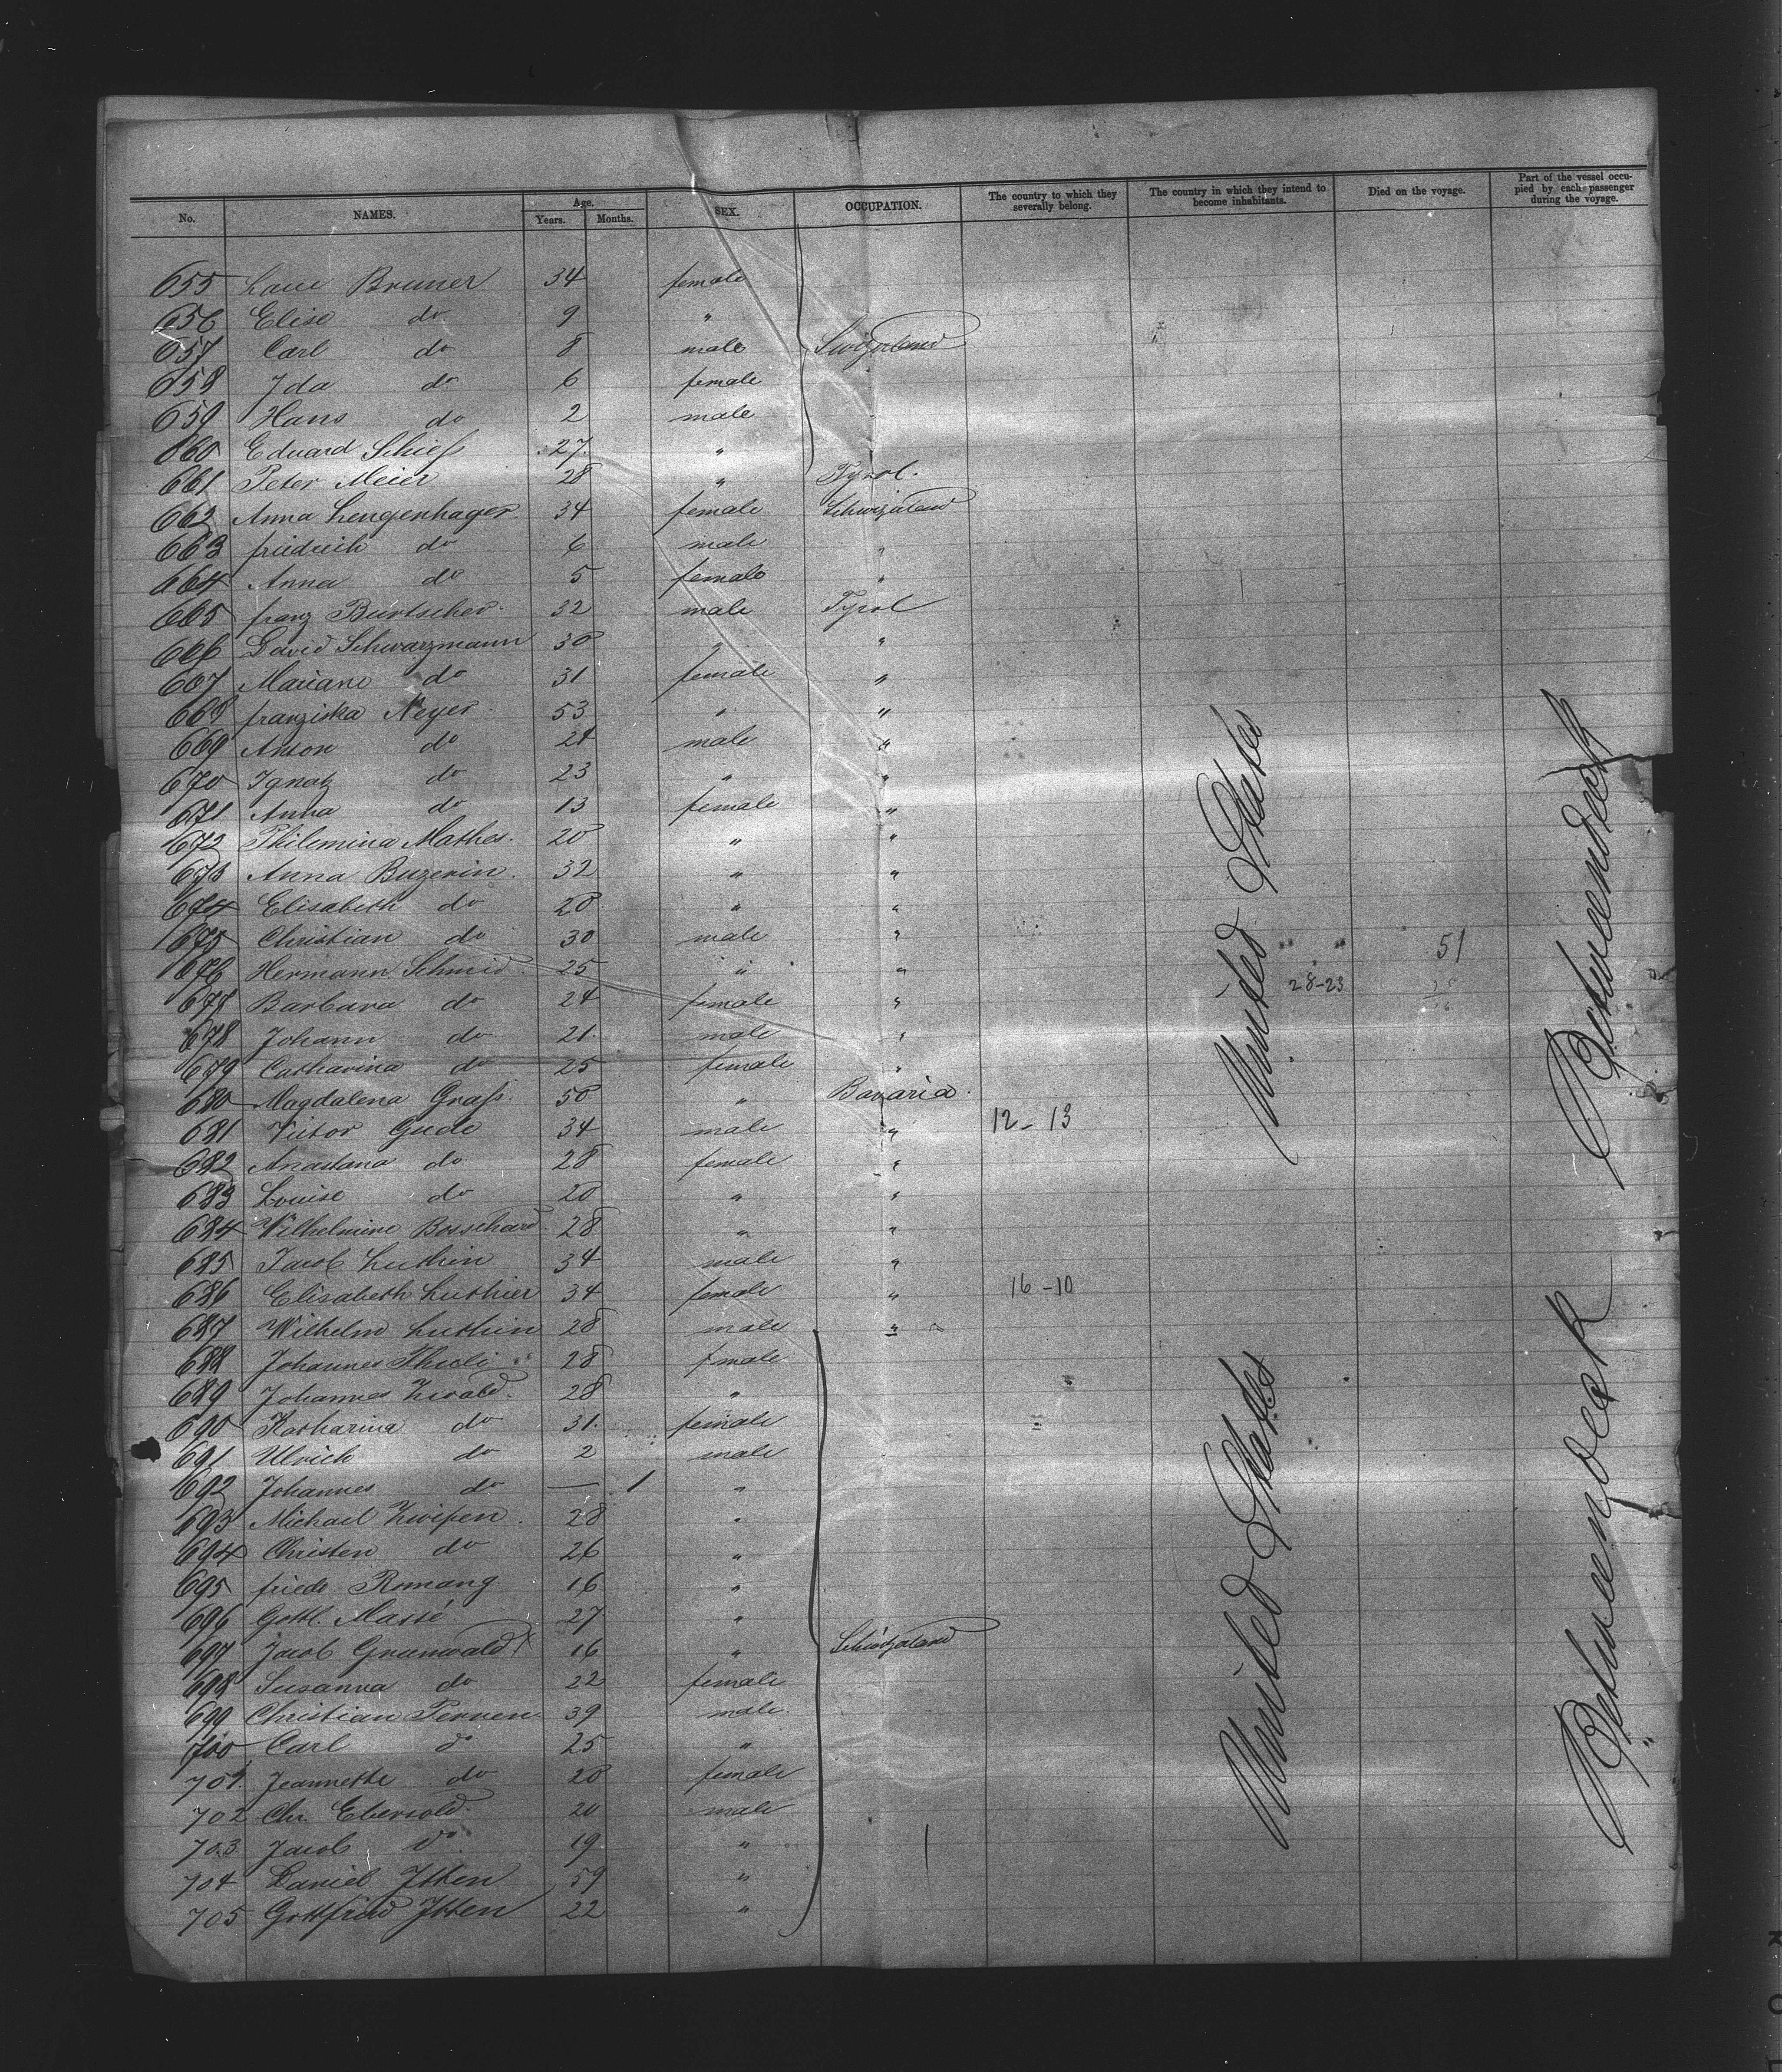 No. NAMES. Age. Years. Months. SEX. OCCUPATION. The country to which they severally belong. The country in which they intend to become inhabitants. Died on the voyage. Part of the vessel occupied by each passenger during the voyage.
655 Bruner 34 female
656 Elise do 9 "
657 Carl do 8 male Switzerland
658 Ida do 6 female
659 Hans do 2 male
660 Eduard Schiess 27 "
661 Peter Meier 28 " Tyrol.
662 Anna Lengenhager 34 female Schwizerland
663 friedrich do 6 male "
664 Anna do 5 female "
665 franz Burtscher 32 male Tyrol
666 David Schwarzmann 30 " "
667 Mariane do 31 female "
668 franziska Neyer 53 " "
669 Anton do 24 male "
670 Ignatz do 23 " "
671 Anna do 13 female "
672 Philemina Mathes. 20 " "
673 Anna Buzerin. 32 " "
674 Elisabeth do 20 " "
675 Christian do 30 male " 51
676 Hermann Schmid 25 " " 28-23
677 Barbara do 24 female "
678 Johann do 21 male "
679 Catharina do 25 female "
680 Magdalena Grass. 50 " Bavaria.
681 Victor Gude 34 male " 12-13
682 Anastana do 28 female "
683 Louise do 20 " "
684 Wilhelmine Bosshard 28 " "
685 Jacob Luthin 34 male "
686 Elisabeth Luthier 34 female " 16-10
687 Wilhelm Luthin 28 male "
688 Johannes 28 male
689 Johannes Zwald. 28 "
690 Katharina do 31. female
691 Ulrich do 2 male
692 Johannes do — 1 "
693 Michael Zwissen. 28 "
694 Christen do 26 "
695 friedr Romang 16 "
696 Gottl. Massé 27 "
697 Jacob Grunwald X 16 " Schwitzerland
698 Susanna do 22 female
699 Christian Perren 39 male
700 Carl do 25 "
701. Jeannette do 20 female
702 Chr. Ebersold. 20 male
703 Jacob do. 19 "
704 Daniel Itten 59 "
705 Gottfried Itten 22 "
United States
United States
Betweendeck
Betweendeck